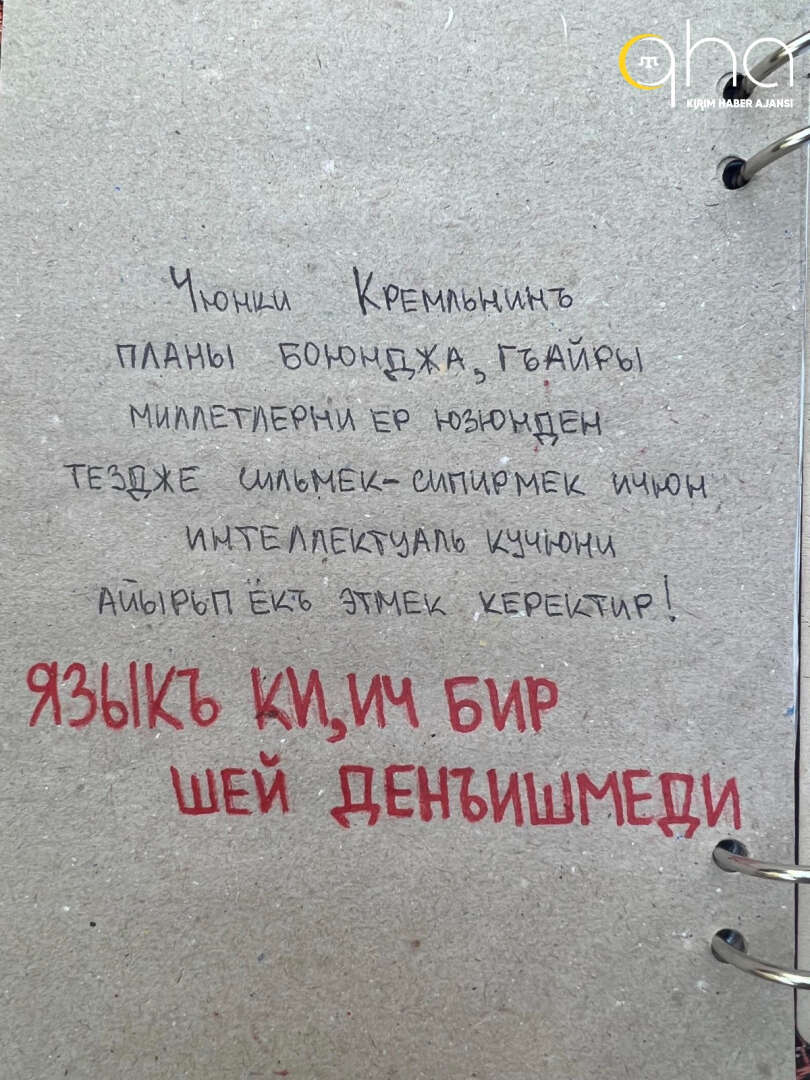 qha
KIRIM HABER AJANSI
Чюнки Кремльнинъ
планы боюнджа, гъайры
миллетлерни ер юзюнден
тездже сильмек-сипирмек ичюн
интеллектуаль кучюни
айырып ёкъ этмек керектир!
ЯЗЫКЪ КИ, ИЧ БИР
ШЕЙ ДЕНЪИШМЕДИ